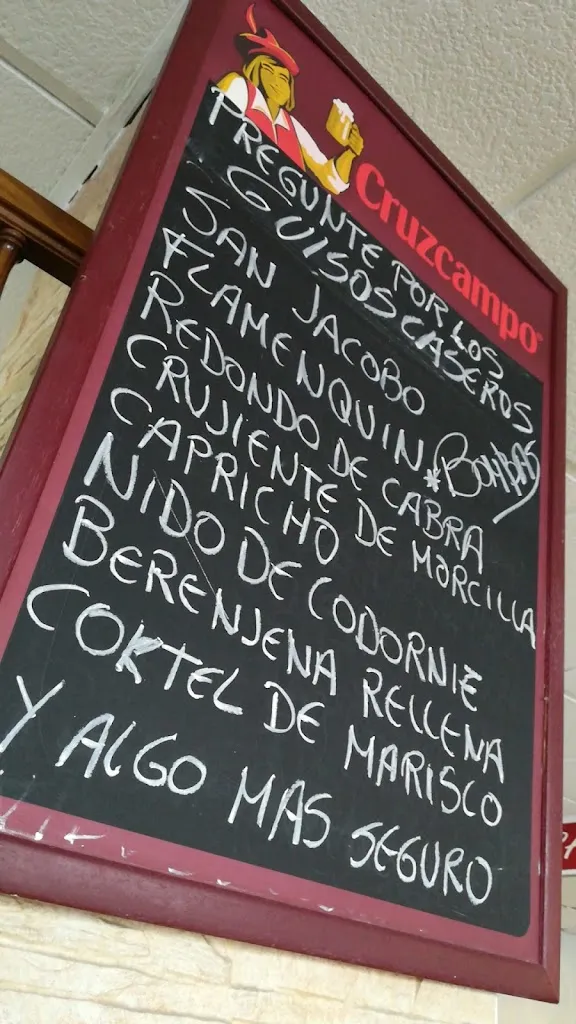 Cruzcampo
PREGUNTE POR LOS
GUISOS CASEROS
SAN JACOBO
FLAMENQUIN * BOMBAS
REDONDO DE CABRA
CRUJIENTE DE MORCILLA
CAPRICHO
NIDO DE CODORNIZ
BERENJENA RELLENA
COKTEL DE MARISCO
Y ALGO MAS SEGURO